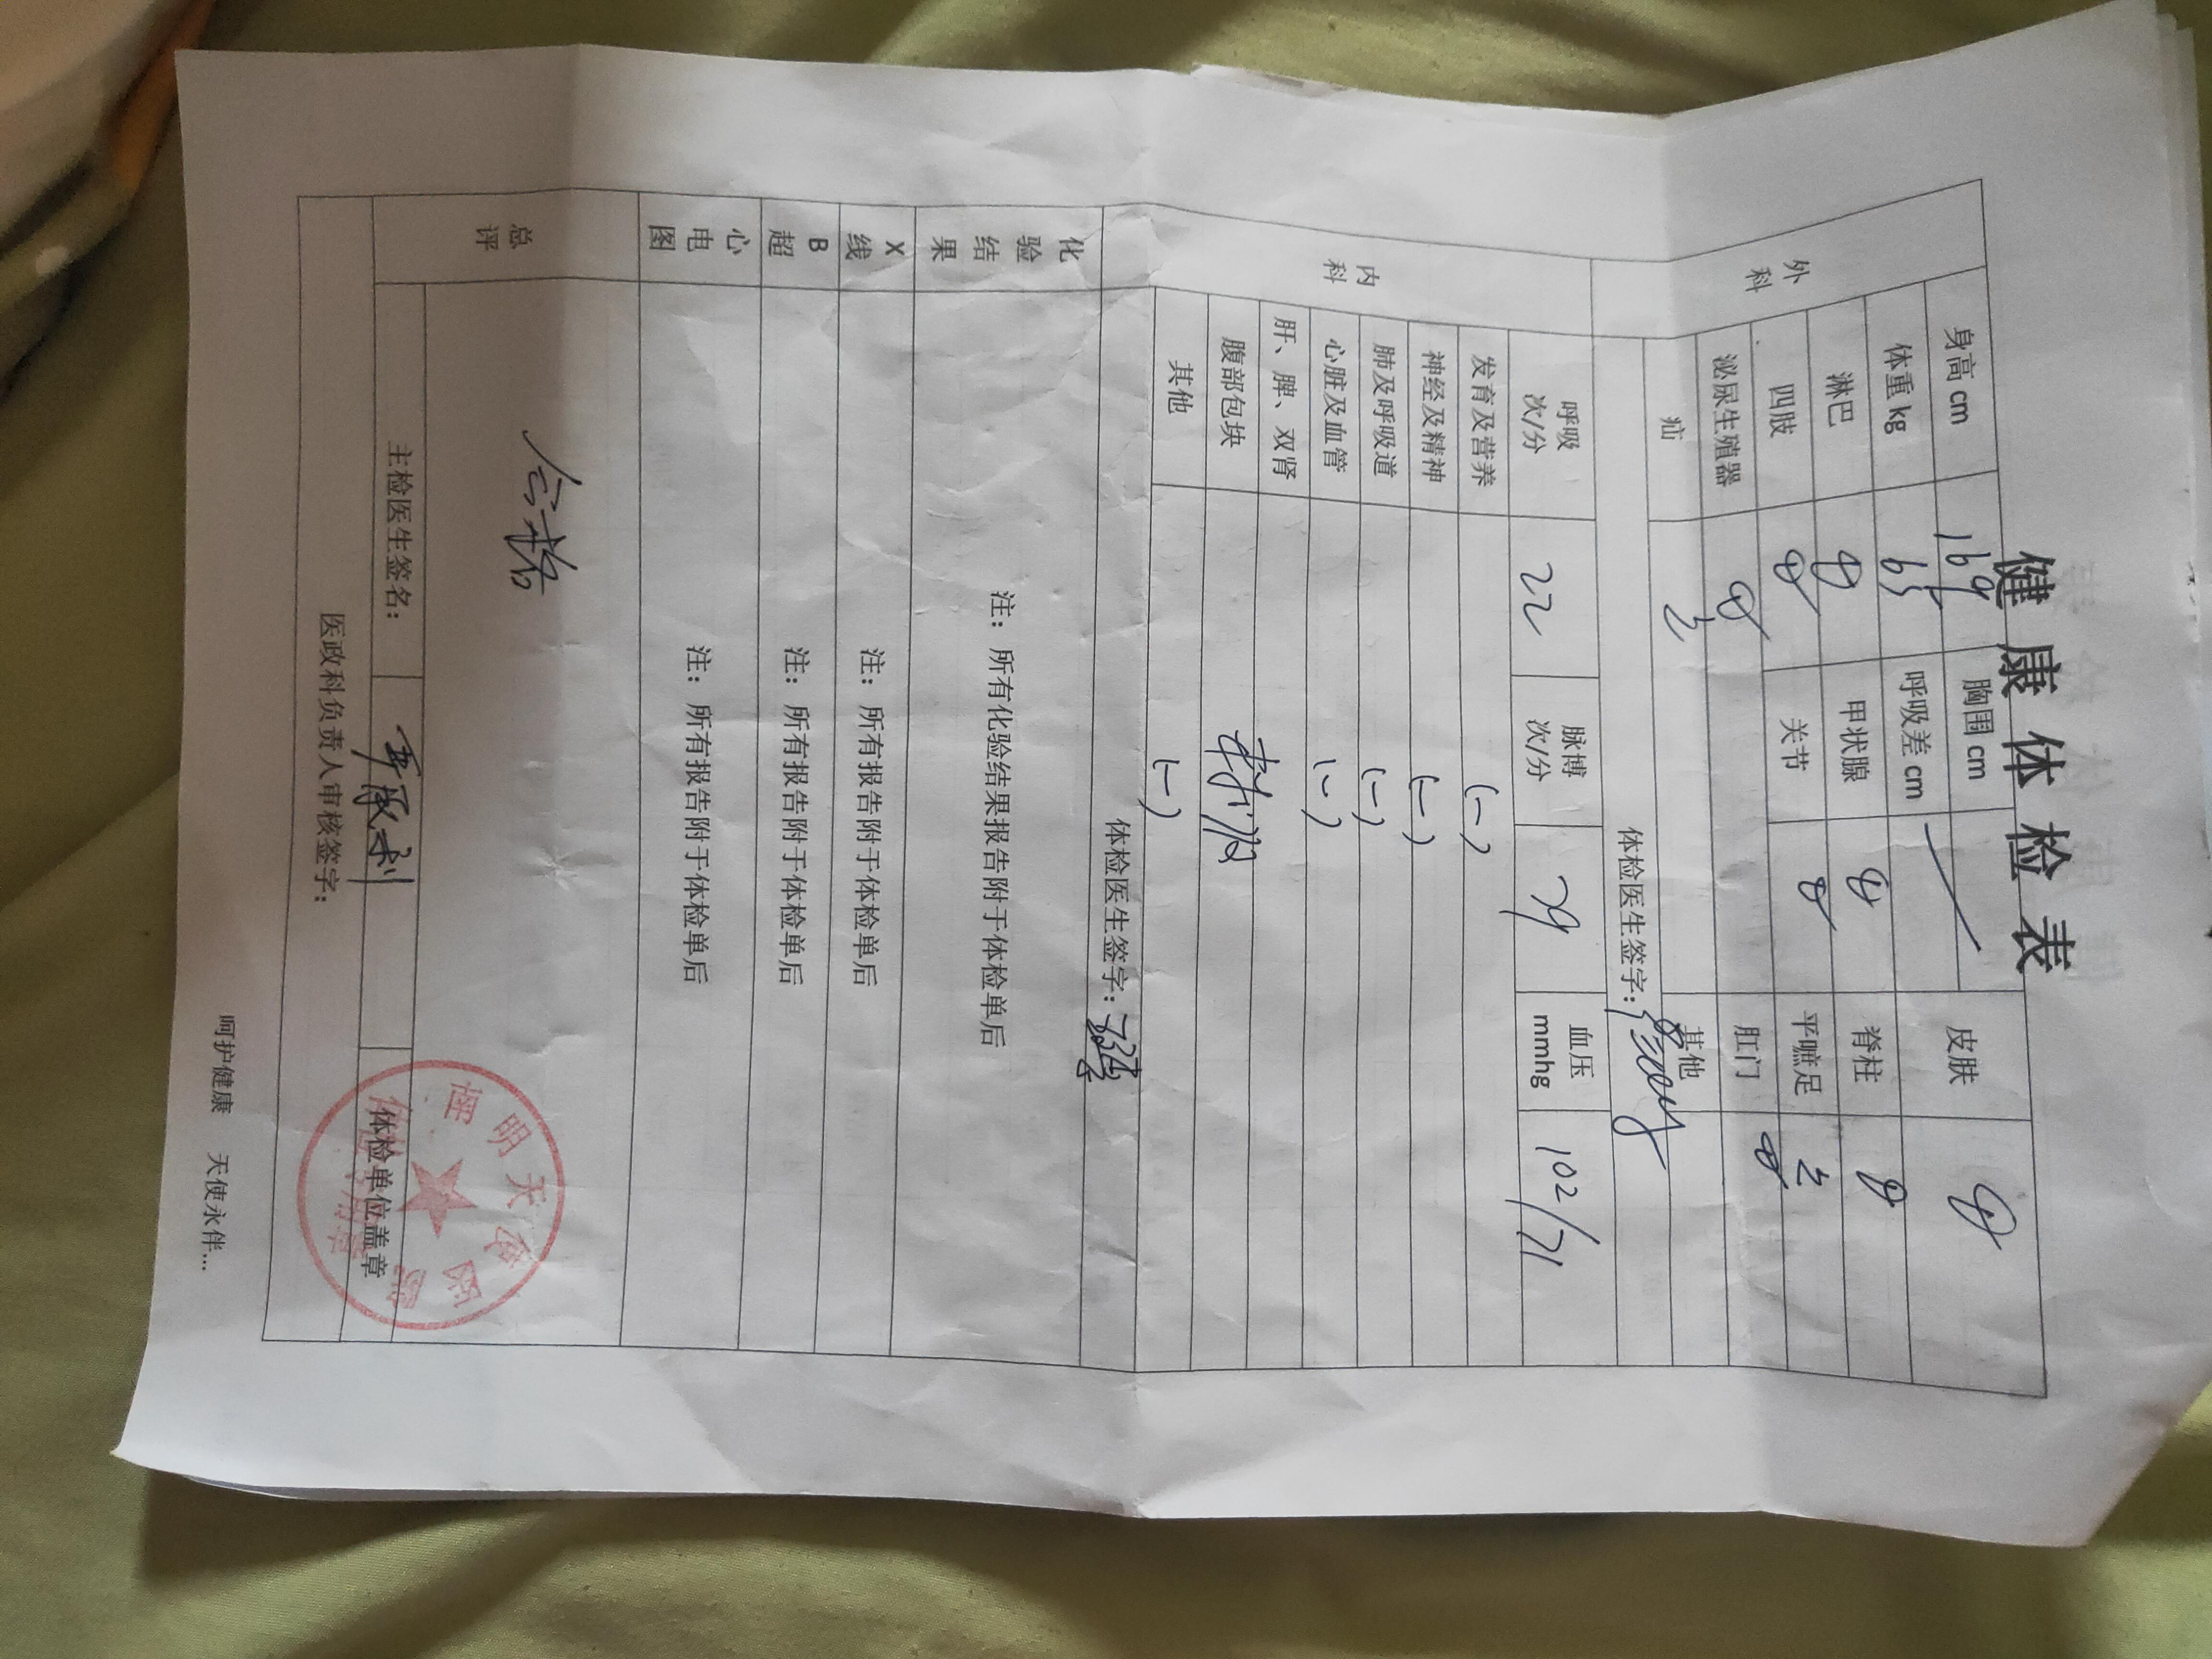 健康体检表
外科 身高cm 169 胸围cm 皮肤
体重kg 65 呼吸差cm
淋巴 甲状腺 脊柱
四肢 关节 平蹠足
泌尿生殖器 肛门
疝 其他
体检医生签字：
内科 呼吸次/分 22 脉博次/分 79 血压mmhg 102/71
发育及营养 (-)
神经及精神 (-)
肺及呼吸道 (-)
心脏及血管 (-)
肝、脾、双肾
腹部包块 未触及
其他 (-)
体检医生签字：
化验结果 注：所有化验结果报告附于体检单后
X线 注：所有报告附于体检单后
B超 注：所有报告附于体检单后
心电图 注：所有报告附于体检单后
总评 合格
主检医生签名： 体检单位盖章
医政科负责人审核签字：
南明天使医院
呵护健康 天使永伴...